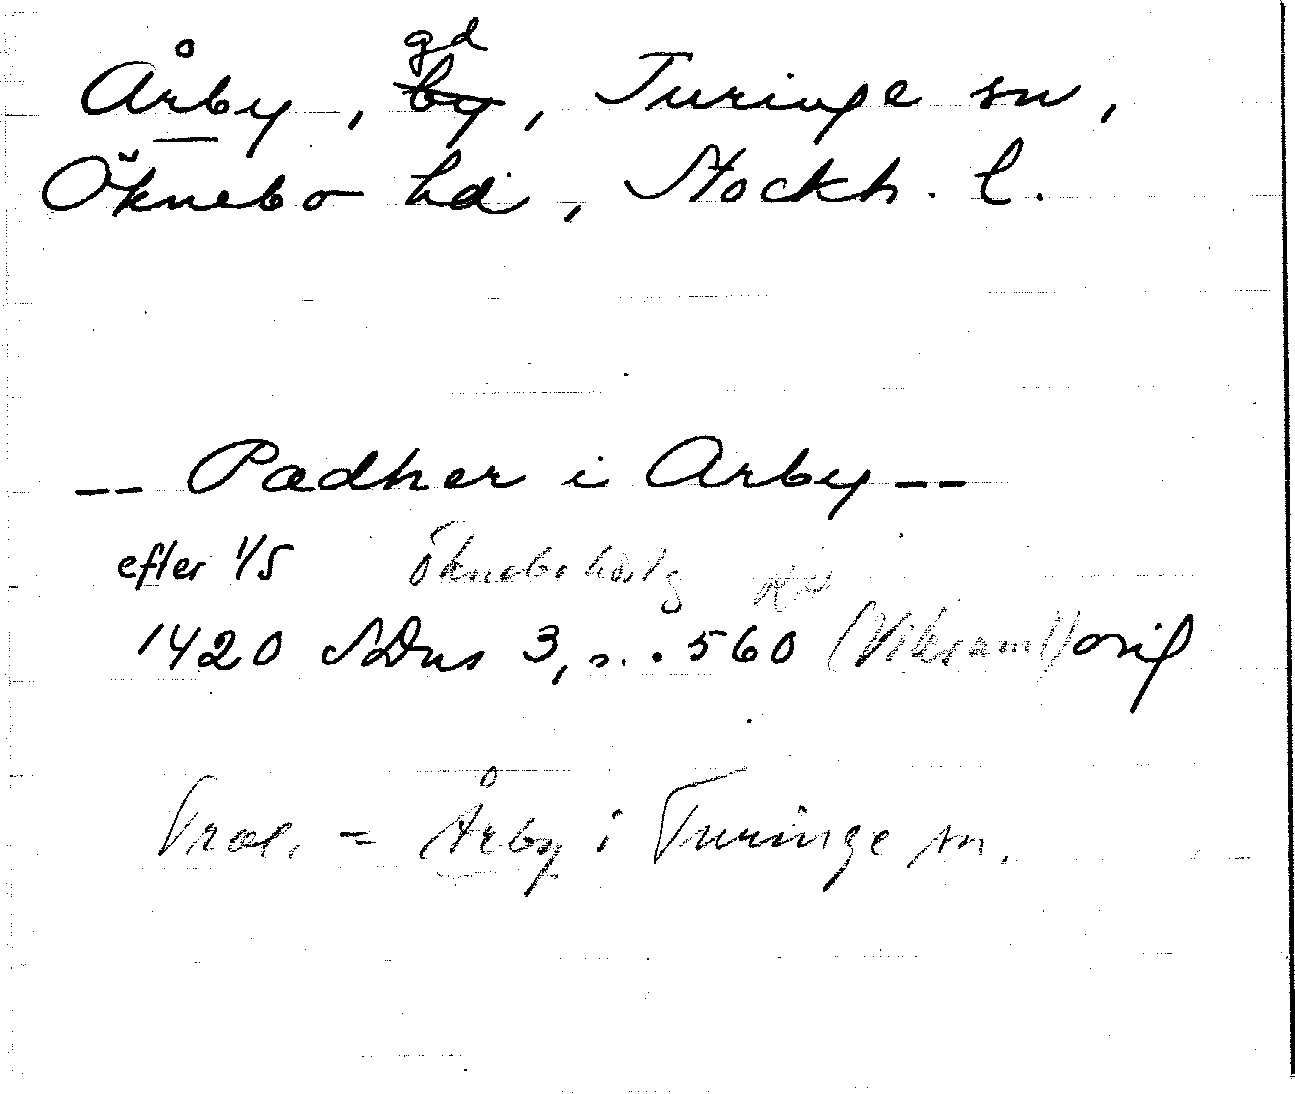 Årby, gd by, Turinge sn,
Öknebo hd, Stockh. l.
-- Pædher i Arby --
efter 1/5 Öknebo härg
1420 SDns 3, s. 560 (Viksaml) orig
Trol. = Årby i Turinge sn.